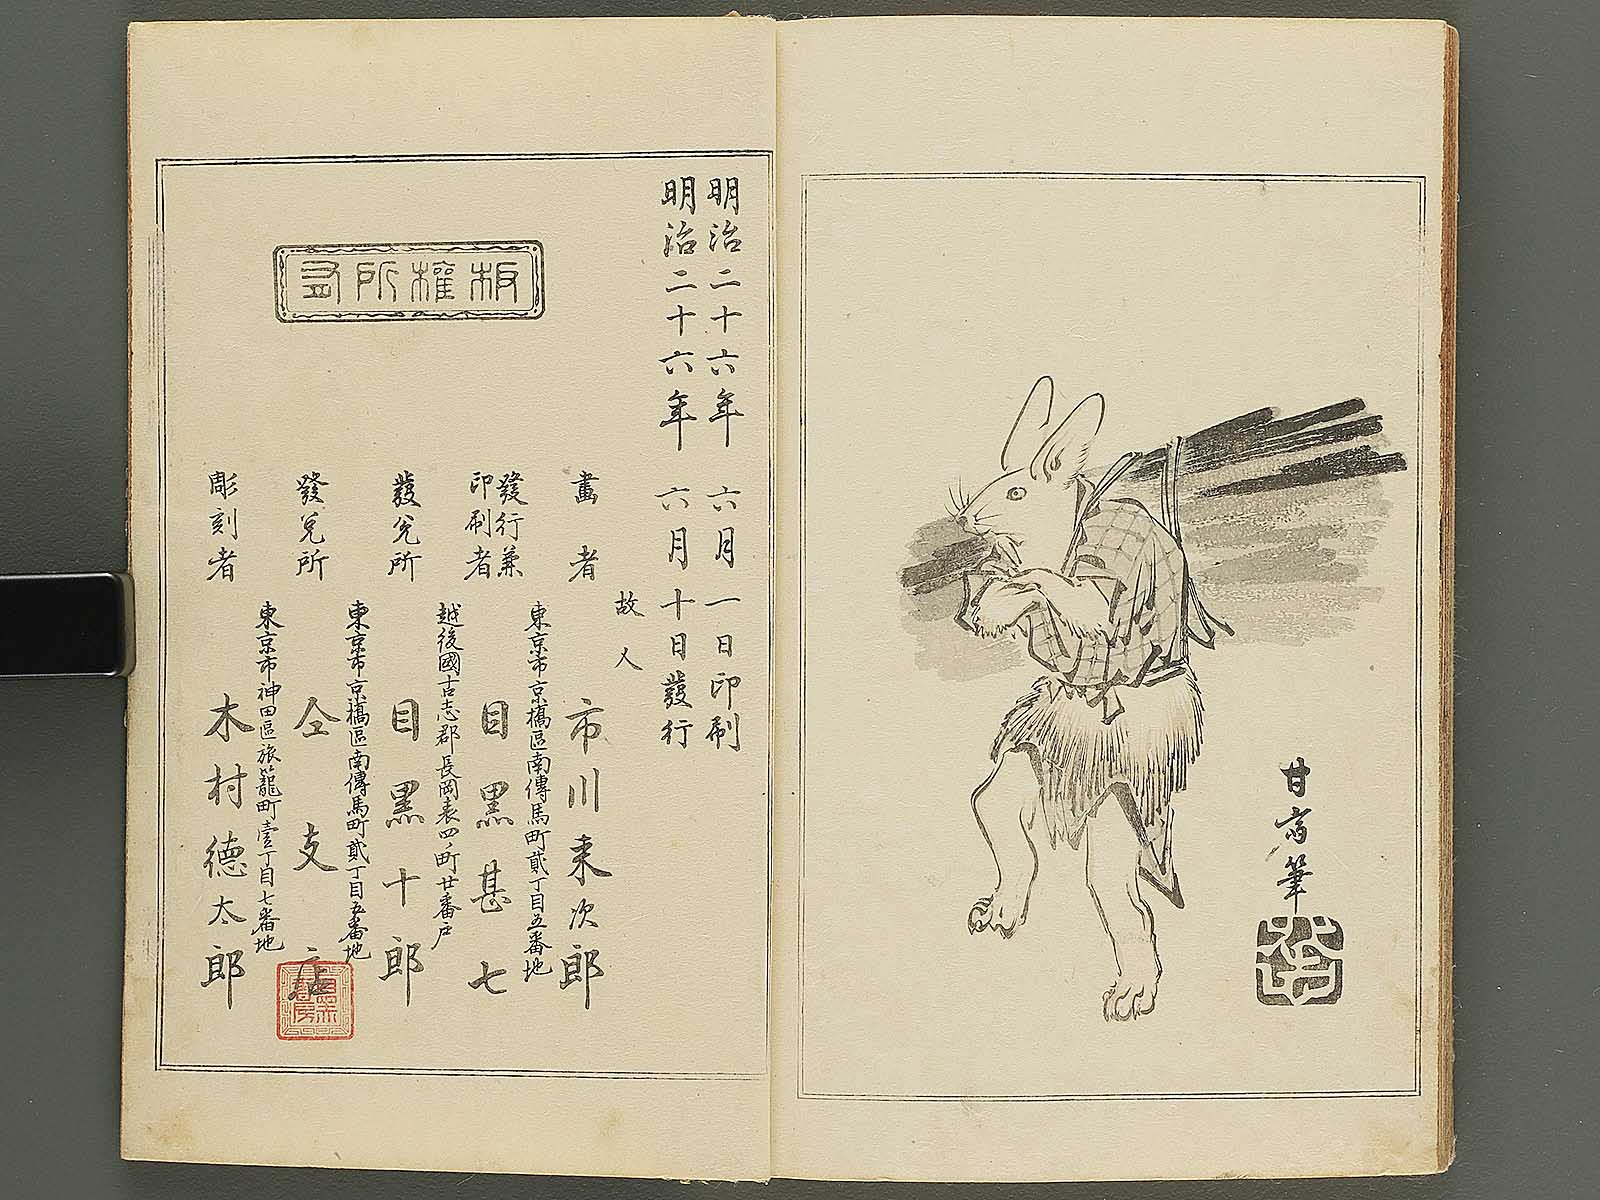 甘斎筆
明治二十六年六月一日印刷
明治二十六年六月十日發行
故人
畫者 市川来次郎
東京市京橋區南傳馬町貳丁目五番地
發行兼印刷者 目黒甚七
越後國古志郡長岡表四ノ町廿番戸
發兌所 目黒十郎
東京市京橋區南傳馬町貳丁目五番地
發兌所 仝支店
東京市神田區旅籠町壹丁目七番地
彫刻者 木村徳太郎
板權所有